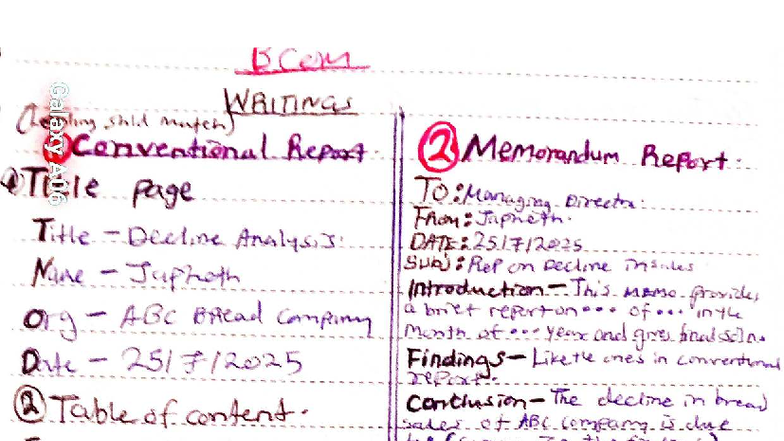 BCom
WRITINGS
(Heading shld match)
① Conventional Report
① Title page
Title – Decline Analysis
Name – Japheth
Org – ABC Bread Company
Date – 25/7/2025
② Table of content.
② Memorandum Report.
To: Managing Director
From: Japheth.
DATE: 25/7/2025
Subj: Rep on Decline in sales
Introduction – This memo provides
a brief report on ••• of ••• in the
Month of ••• year and gives
Findings – Like the ones in conventional
report.
Conclusion – The decline in bread
sales of ABC company is due
Galaxy A16